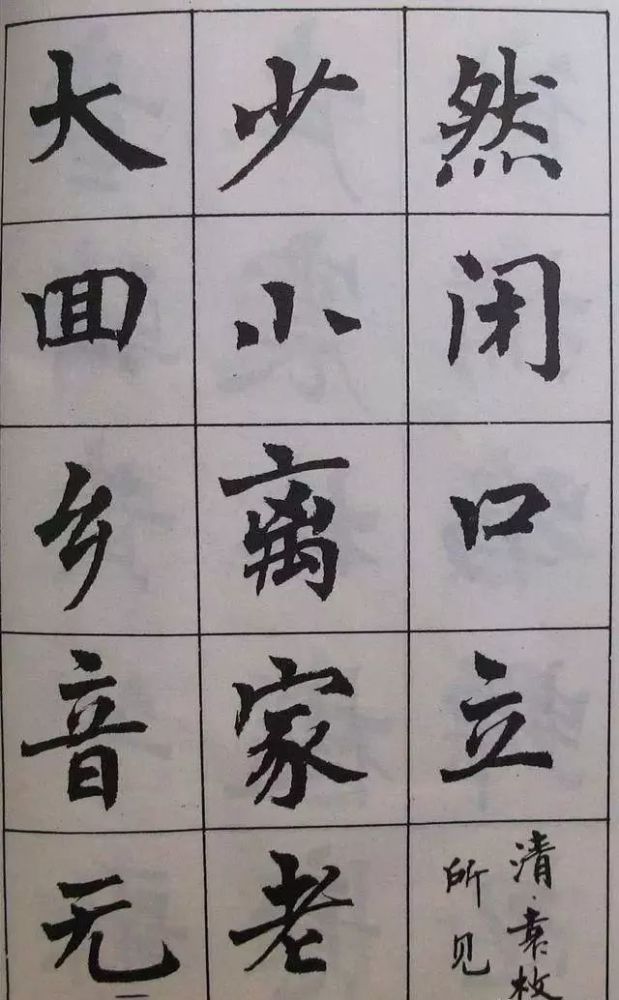 然闭口立
清·袁枚
所见
少小离家老
大回乡音无